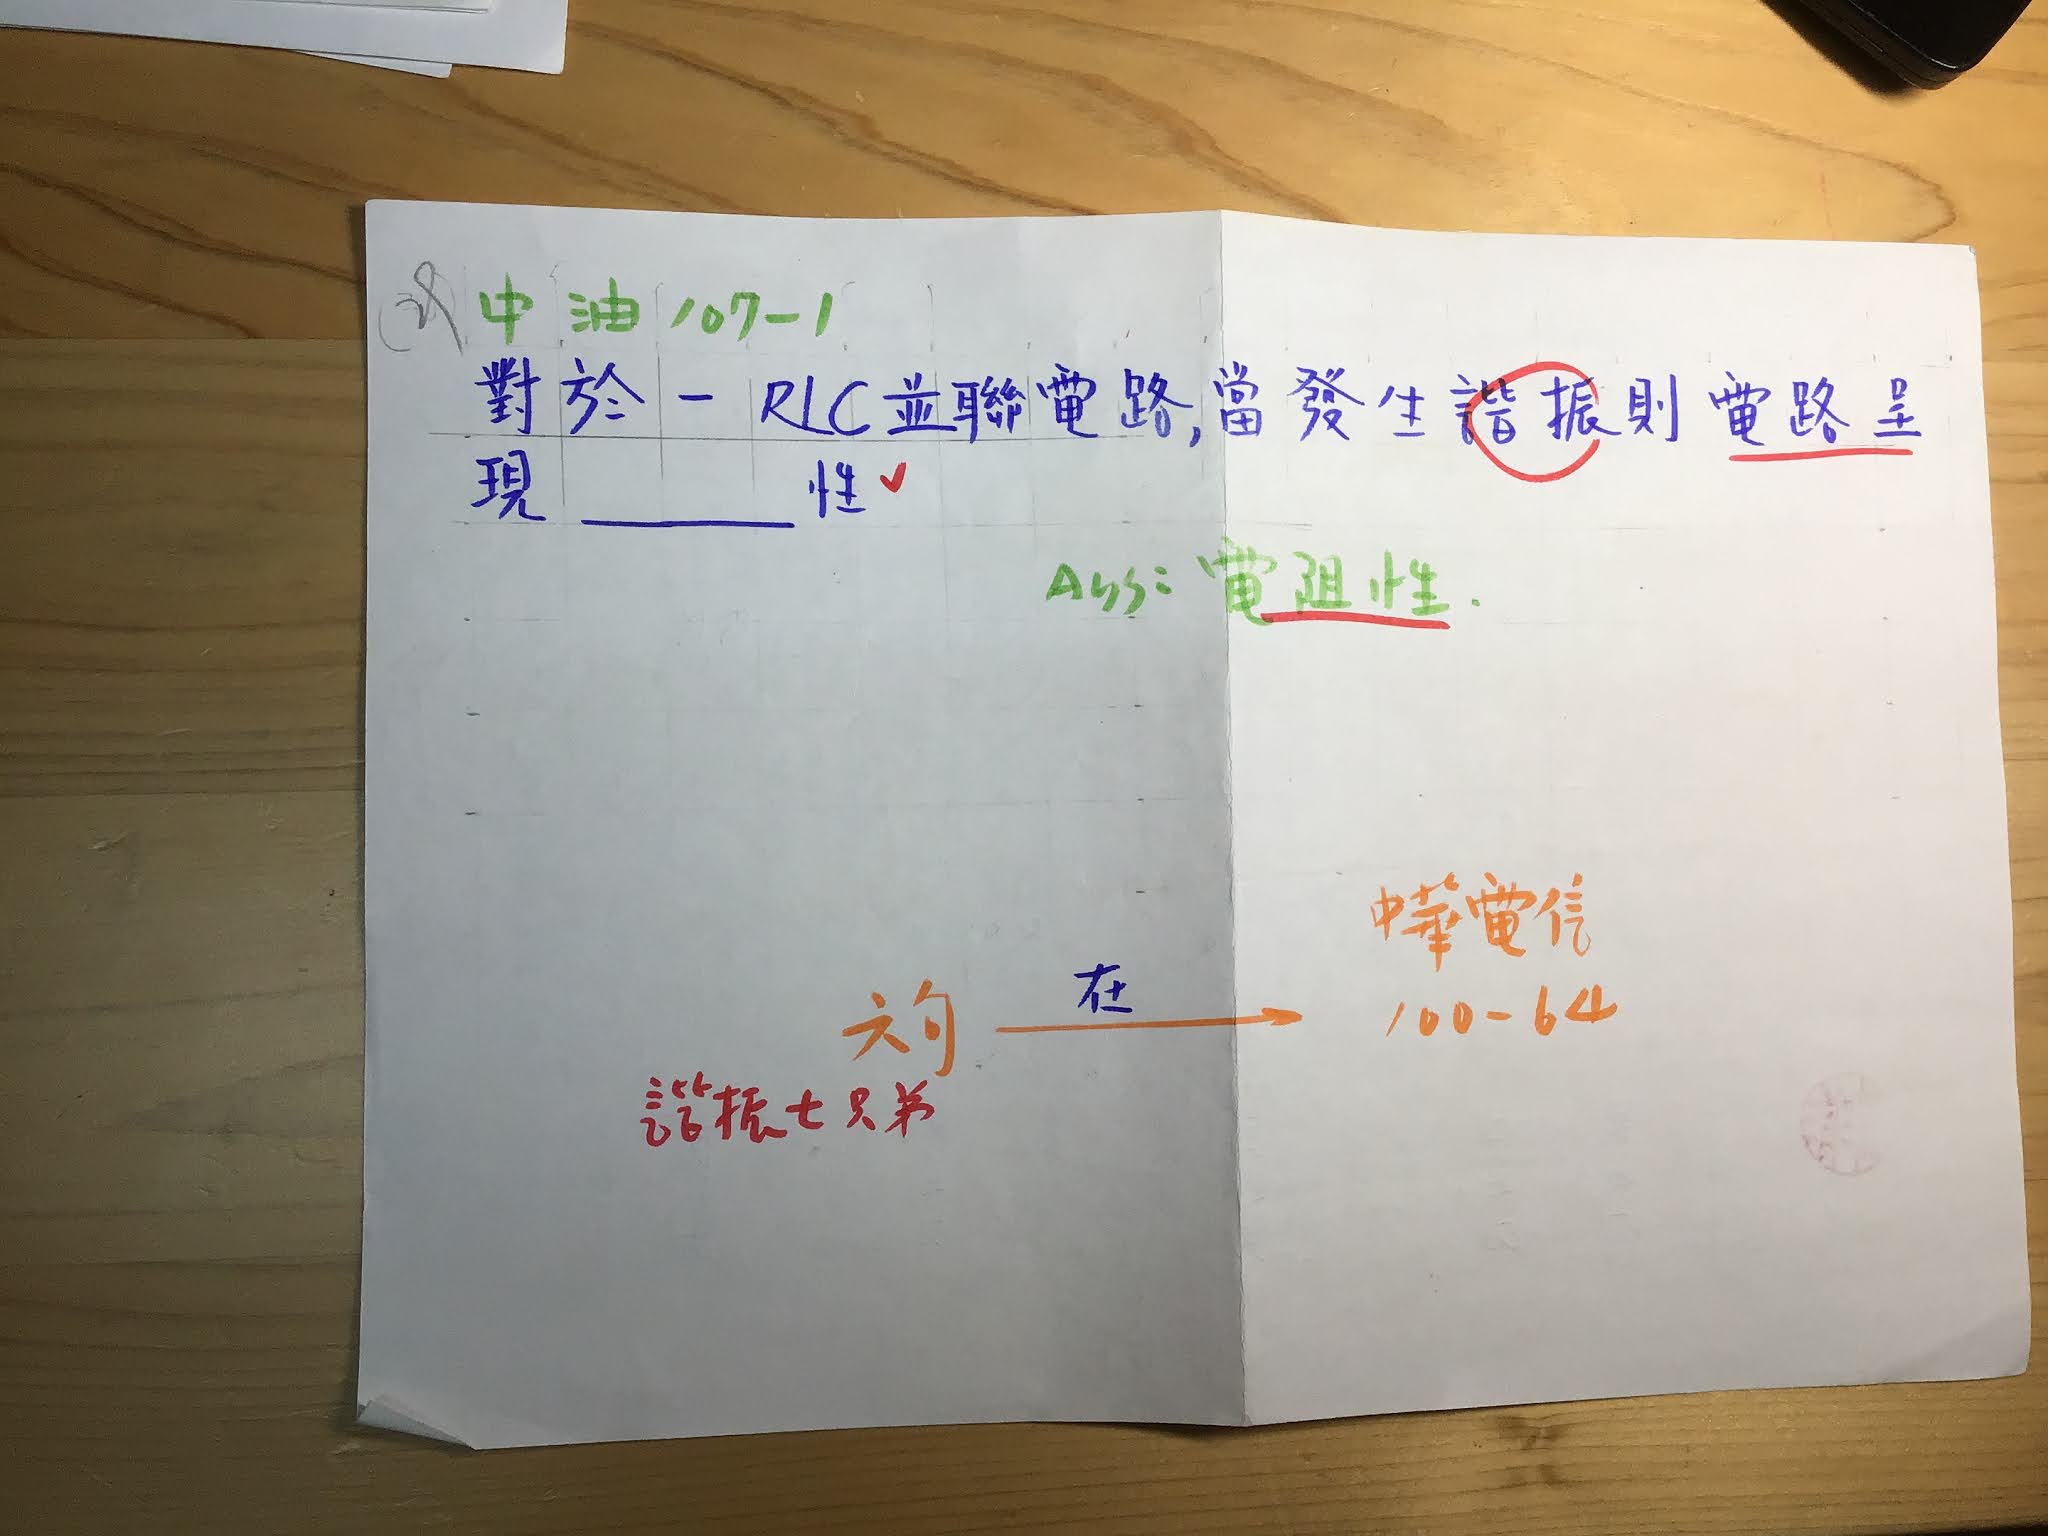 中油107-1
對於一RLC並聯電路,當發生諧振則電路呈
現______性✓
Ans:電阻性.
中華電信
六句 在→ 100-64
諧振七兄弟